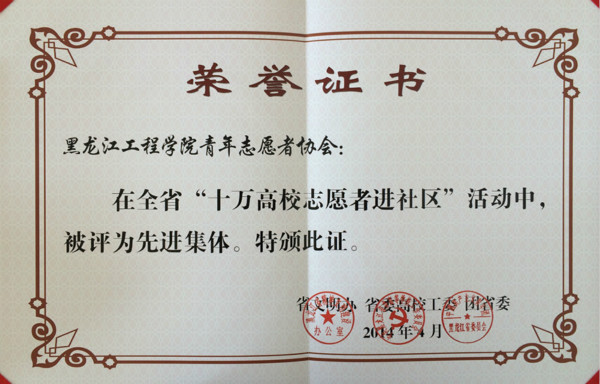 荣誉证书
黑龙江工程学院青年志愿者协会：
在全省“十万高校志愿者进社区”活动中，
被评为先进集体。特颁此证。
省文明办 省委高校工委 团省委
办公室
黑龙江省委员会
2014年4月